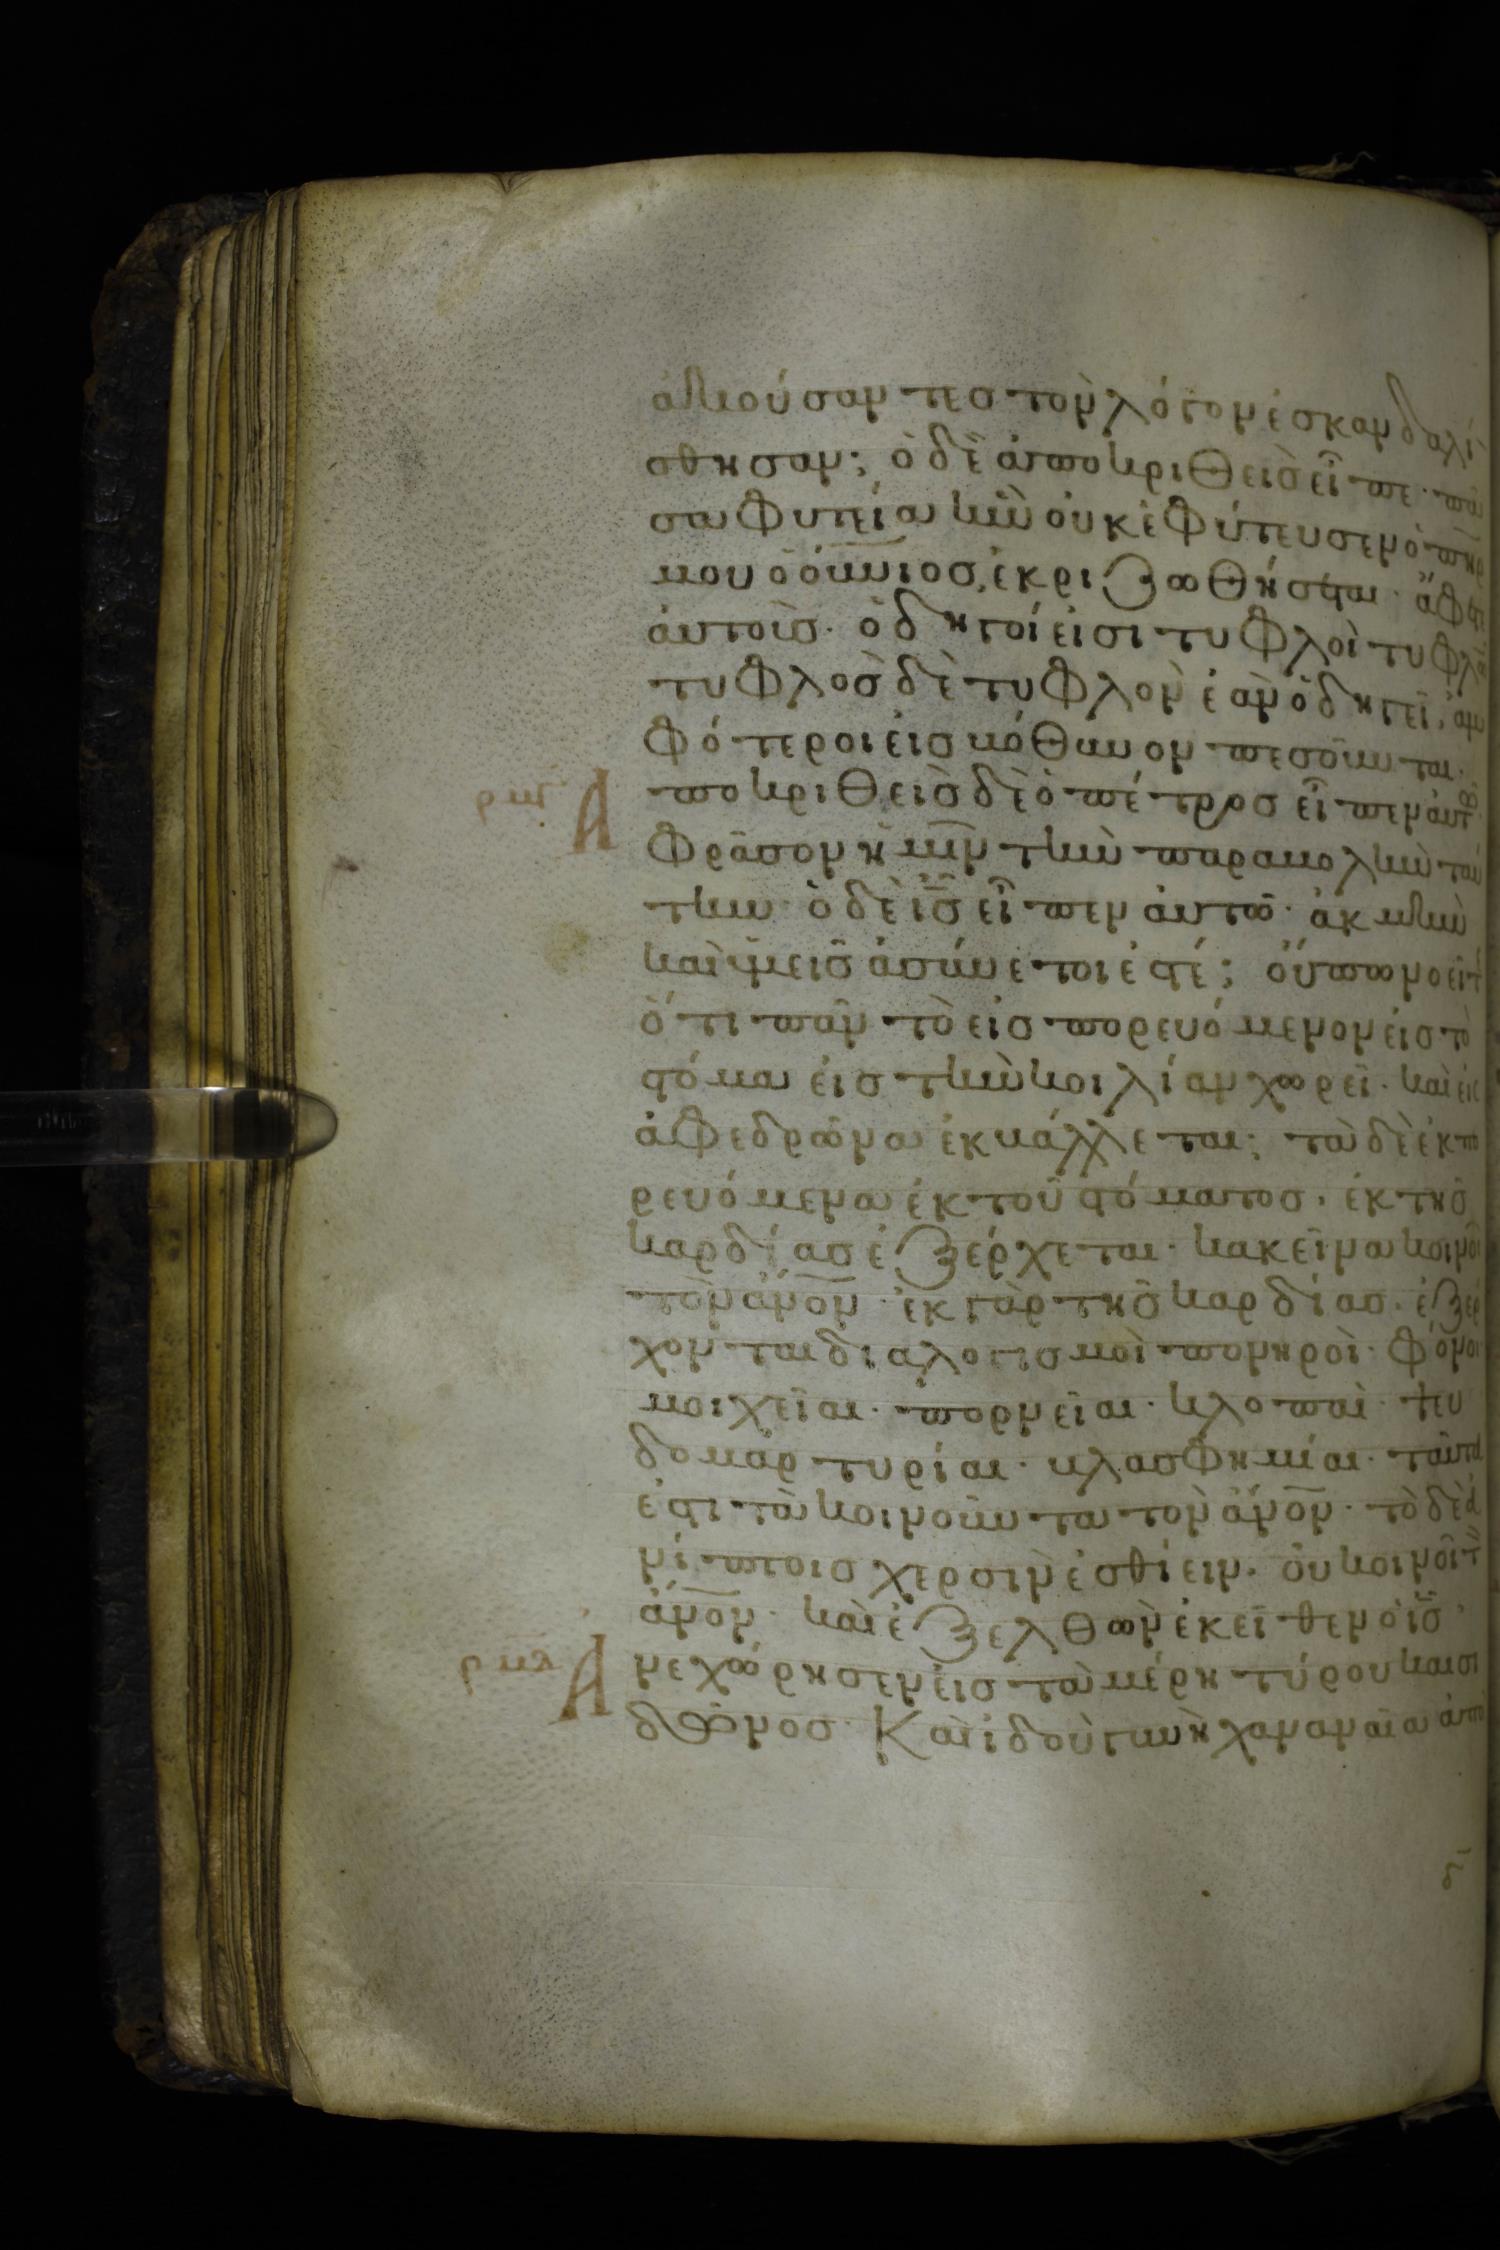 ἀκούσαντες τὸν λόγον ἐσκανδαλί
σθησαν; ὁ δὲ ἀποκριθεὶς εἶπε· πᾶ
σα φυτεία ἣν οὐκ ἐφύτευσεν ὁ πηρ
μου ὁ οὐνιος, ἐκριζωθήσεται· ἄφετε
αὐτοὺς· ὁδηγοί εἰσι τυφλοὶ τυφλῶ
τυφλὸς δὲ τυφλὸν ἐὰν ὁδηγεῖ, ἀμ
φότεροι εἰς βόθυνον πεσοῦνται·
ρνζ Ἀ ποκριθεὶς δὲ ὁ πέτρος εἶπεν αὐτῶ
φρᾶσον ἡμῖν τὴν παραβολὴν ταύ
την· ὁ δὲ ις εἶπεν αὐτῶ· ἀκμὴν
καὶ ὑμεῖς ἀσύνετοί ἐστέ; οὔπω νοεῖτε
ὅτι πᾶν τὸ εἰσπορευόμενον εἰς τὸ
στόμα εἰς τὴν κοιλίαν χωρεῖ· καὶ εἰς
ἀφεδρῶνα ἐκβάλλεται; τὰ δὲ ἐκπο
ρευόμενα ἐκ τοῦ στόματος, ἐκ τῆς
καρδίας ἐξέρχεται· κακεῖνα κοινοῖ
τὸν ἄνον· ἐκ γὰρ τῆς καρδίας· ἐξέρ
χονται διαλογισμοὶ πονηροὶ· φόνοι
μοιχεῖαι· πορνεῖαι· κλοπαὶ· ψευ
δομαρτυρίαι· βλασφημίαι· ταῦτά
ἐστι τὰ κοινοῦντα τὸν ἄνον· τὸ δὲ ἀ
νίπτοις χερσὶν ἐσθίειν· οὐ κοινοῖ τὸν
ἄνον· καὶ ἐξελθὼν ἐκεῖθεν ὁ ις,
Ἀ νεχώρησεν εἰς τὰ μέρη τύρου καὶ σι
δῶνος· Καὶ ἰδοὺ γυνὴ χαναναία ἀπὸ